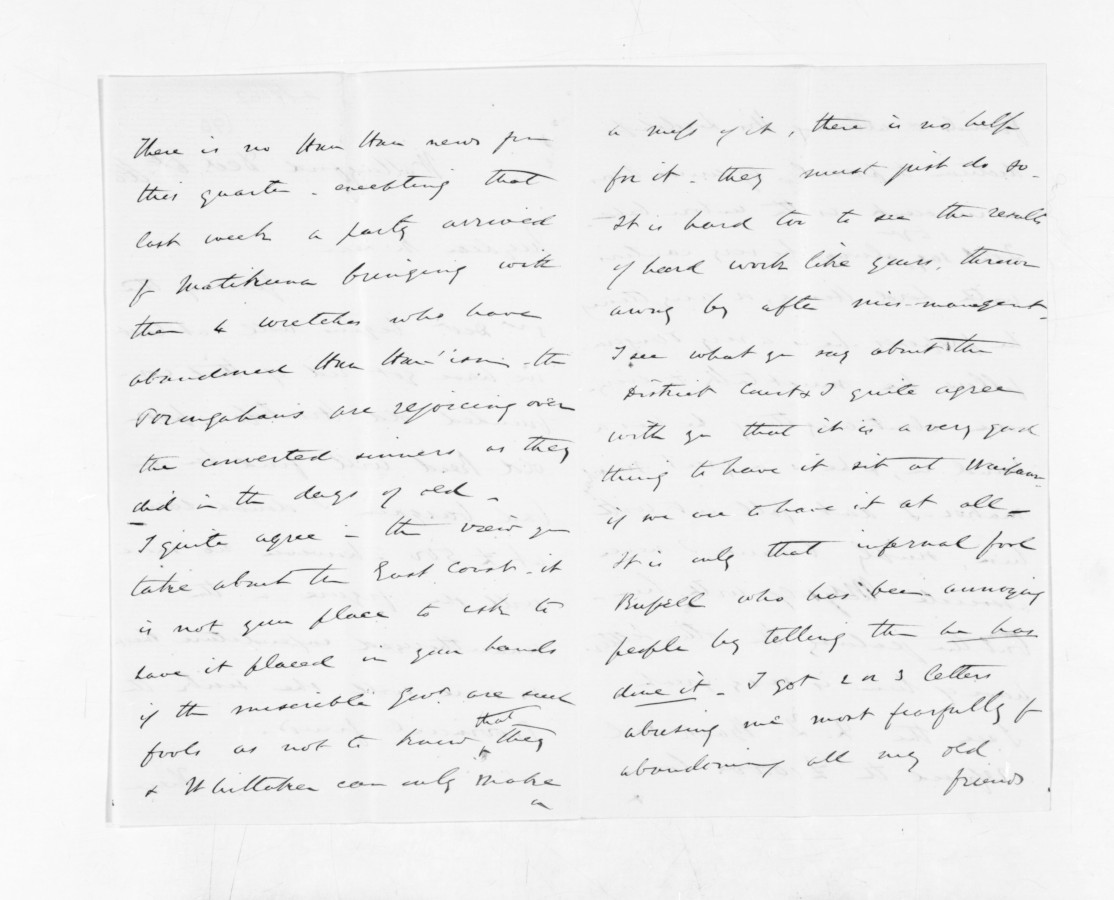 There is no Hau Hau news from
this quarter - excepting that
last week a party arrived
f Matikuna bringing with
them 4 wretches who have
abandoned Hau Hau'ism - the
Porungahaus are rejoicing over
the converted sinners as they
did in the days of old -
I quite agree in the view you
take about the East Coast - it
is not your place to ask to
have it placed in your hands
if the miserible Govt. are such
fools as not to know that they
& Whittaker can only make
a
a mess of it, there is no help
for it - they must just do so -
It is hard too to see the results
of hard work like yours, thrown
away by after mis-management -
I see what you say about the
District Court & I quite agree
with you that it is a very good
thing to have it sit at Waipawa
if we are to have it at all -
It is only that infernal fool
Russell who has been annoying
people by telling them he has
done it - I got 2 or 3 letters
abusing me most fearfully f
abandoning all my old
friends